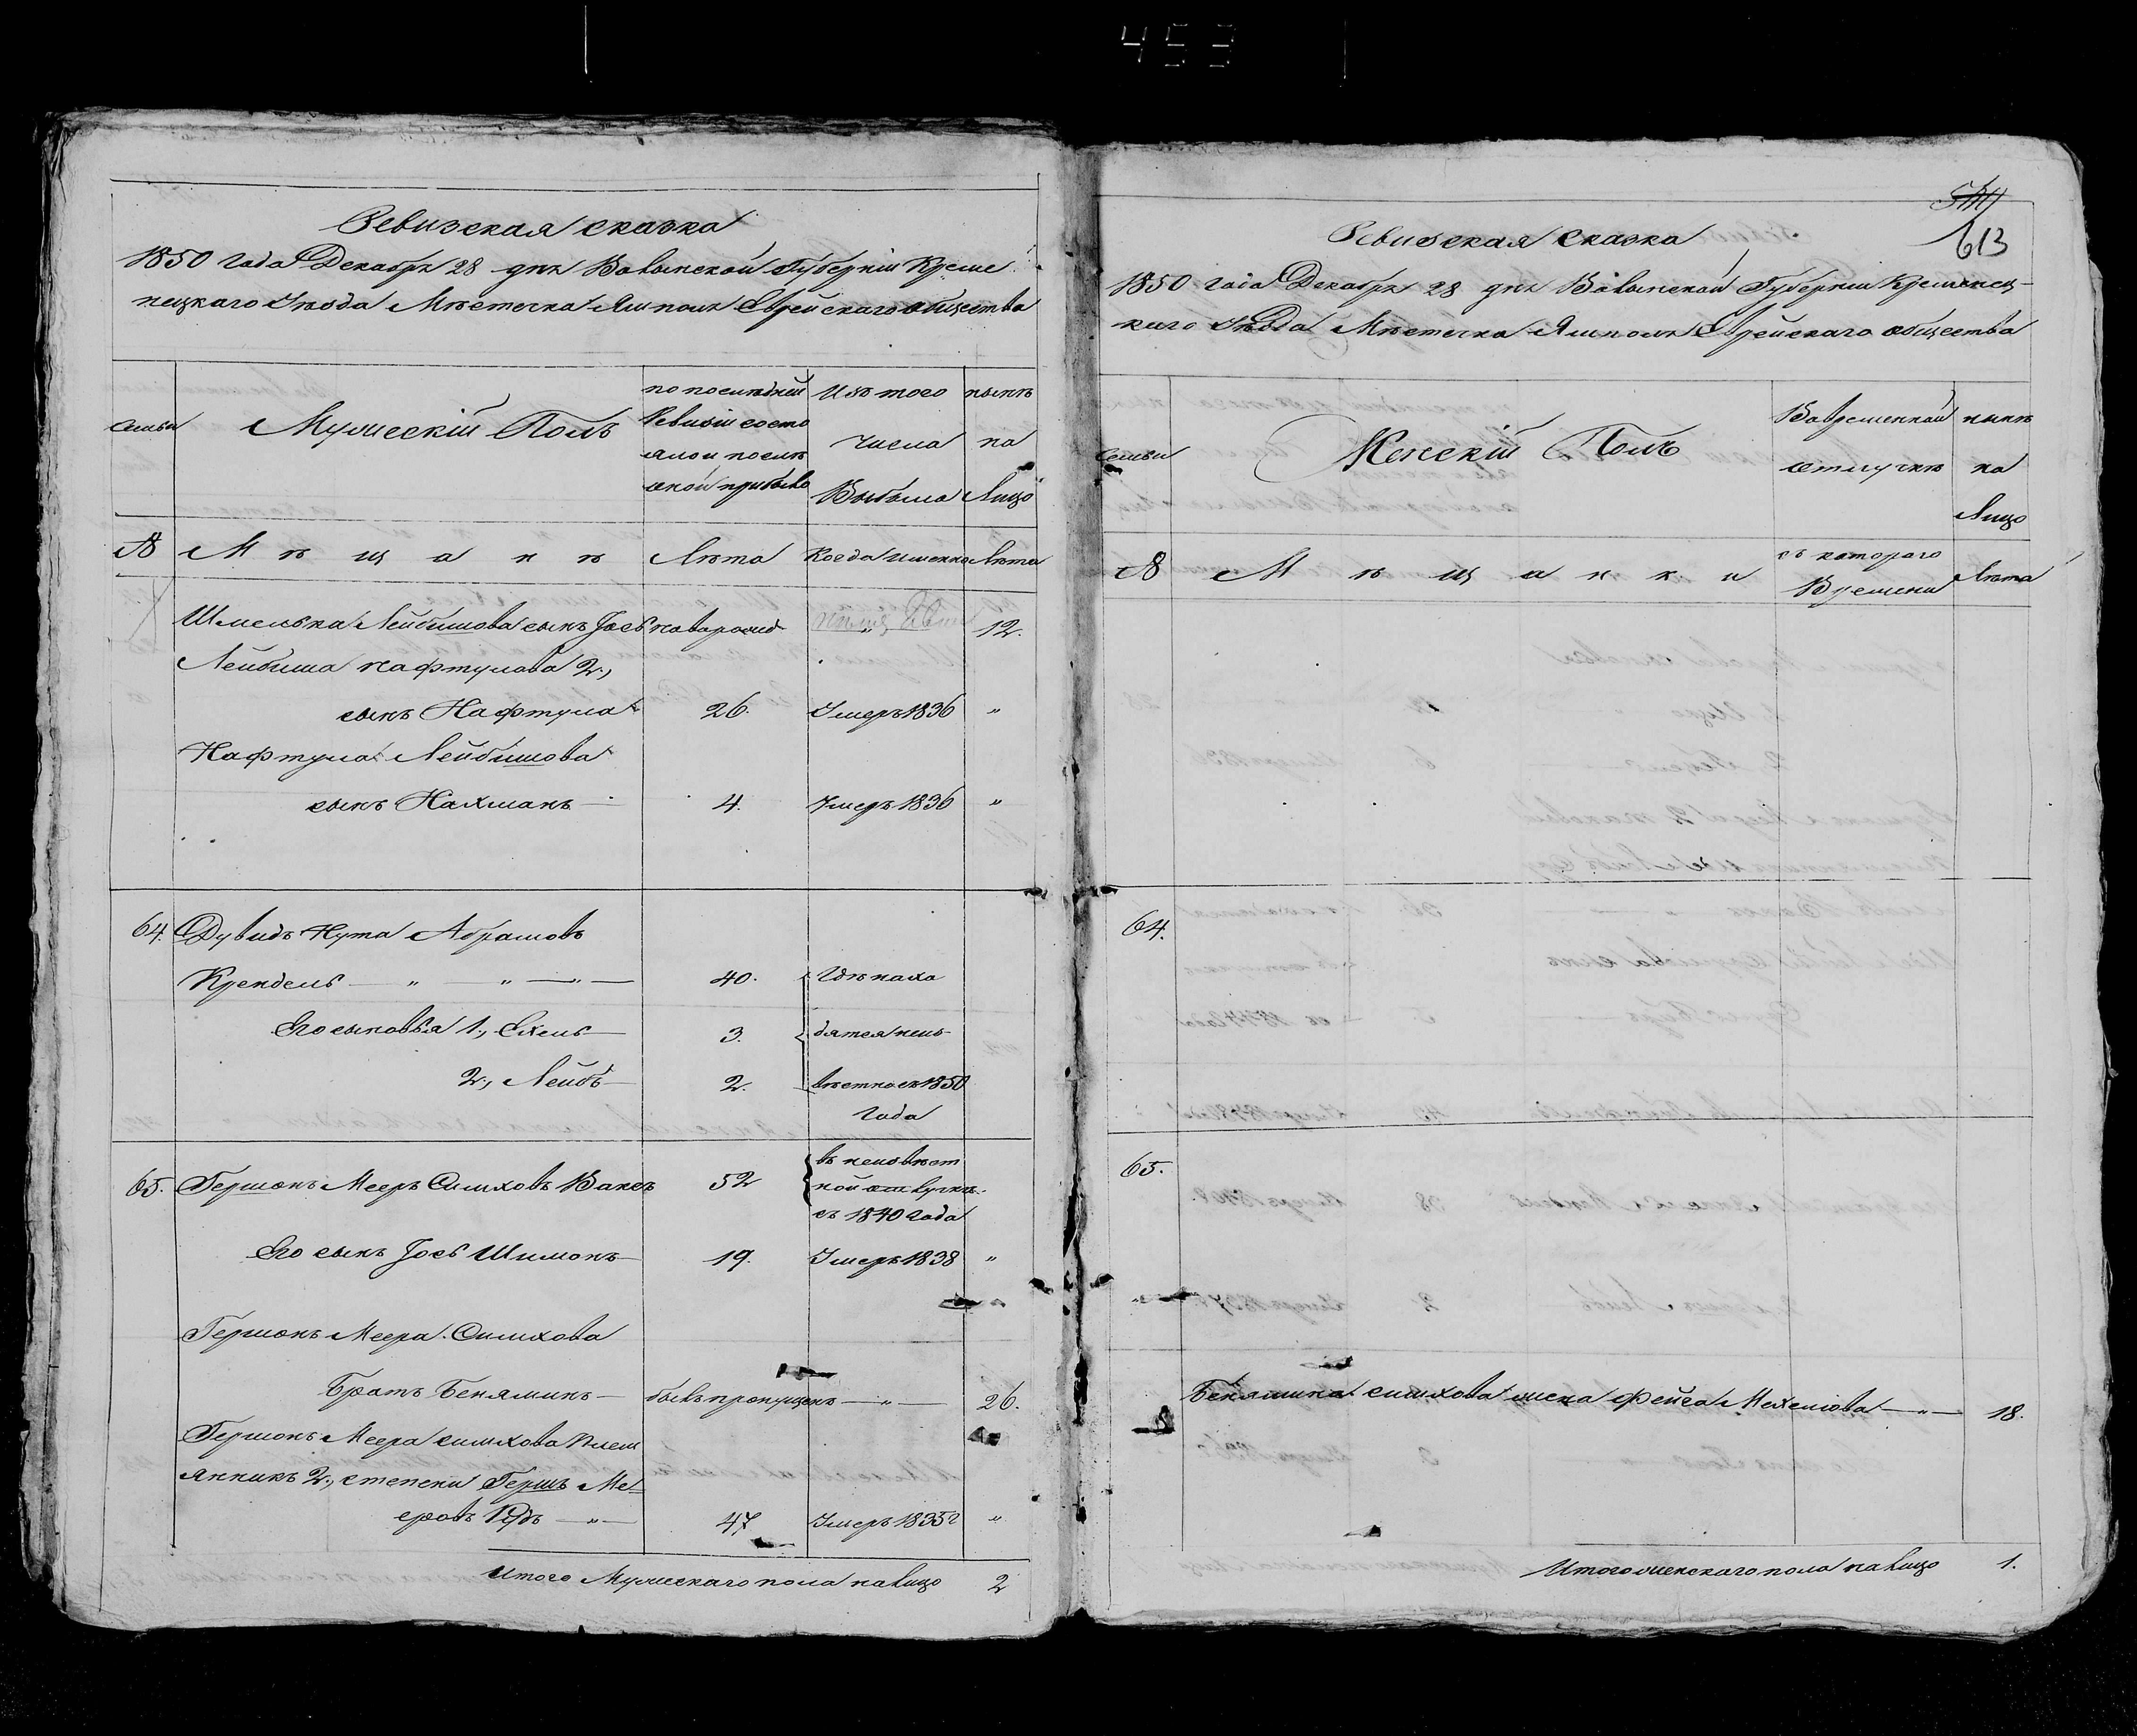 453
Ревизская сказка
1850 года Декабря 28 дня Волынской Губерніи Креме
нецкаго Уѣзда Мѣстечка Ямполя Еврейскаго общества
Семьи
Мужескій Полъ
по последней
Ревизіи состо
яло и послѣ
оной прибыло
Изъ того
числа
Выбыло
нынѣ
на
Лицо
№
М ѣ щ а н ѣ
Лѣта
Когда именно
Лѣта
Шмелька Лейбишова сынъ Іось новорожд
12.
Лейбиша Нафтулова 2.,
сынъ Нафтула
26.
Умеръ 1836
"
Нафтула Лейбишова
сынъ Нахманъ —
4.
Умеръ 1836
"
64. Дувидъ Нута Абрамовъ
Крендель — " — " — " —
40.
Гдѣ нахо
Его сыновья 1., Ехель —
3.
дятся неиз-
2., Лейбъ —
2.
вѣстно съ 1850
Года
65. Гершонъ Мееръ Симховъ Ваксъ
52
въ неизвѣст
ной отлучкѣ
съ 1840 Года
Его сынъ Іось Шимонъ —
19.
Умеръ 1838
"
Гершонъ Меера Симхова
Братъ Беняминъ —
былъ пропущенъ — " —
26.
Гершонъ Меера Симхова Плем
янникъ 2., степени Гершъ Ме-
еровъ — " —
47
Умеръ 1835 г
"
Итого Мужескаго пола налицо
2
613
Ревизская Сказка
1850 года Декабря 28 дня Волынской Губерніи Кременец-
каго Уѣзда Мѣстечка Ямполя Еврейскаго общества
Семьи
Женскій Полъ
Вовременной
отлучкѣ
нынѣ
на
Лицо
№
М ѣ щ а н к и
съ котораго
Времени
Лѣта
64.
65.
Бенямина Симхова жена Фейга Мехелова — " —
18.
Итого женскаго пола налицо
1.